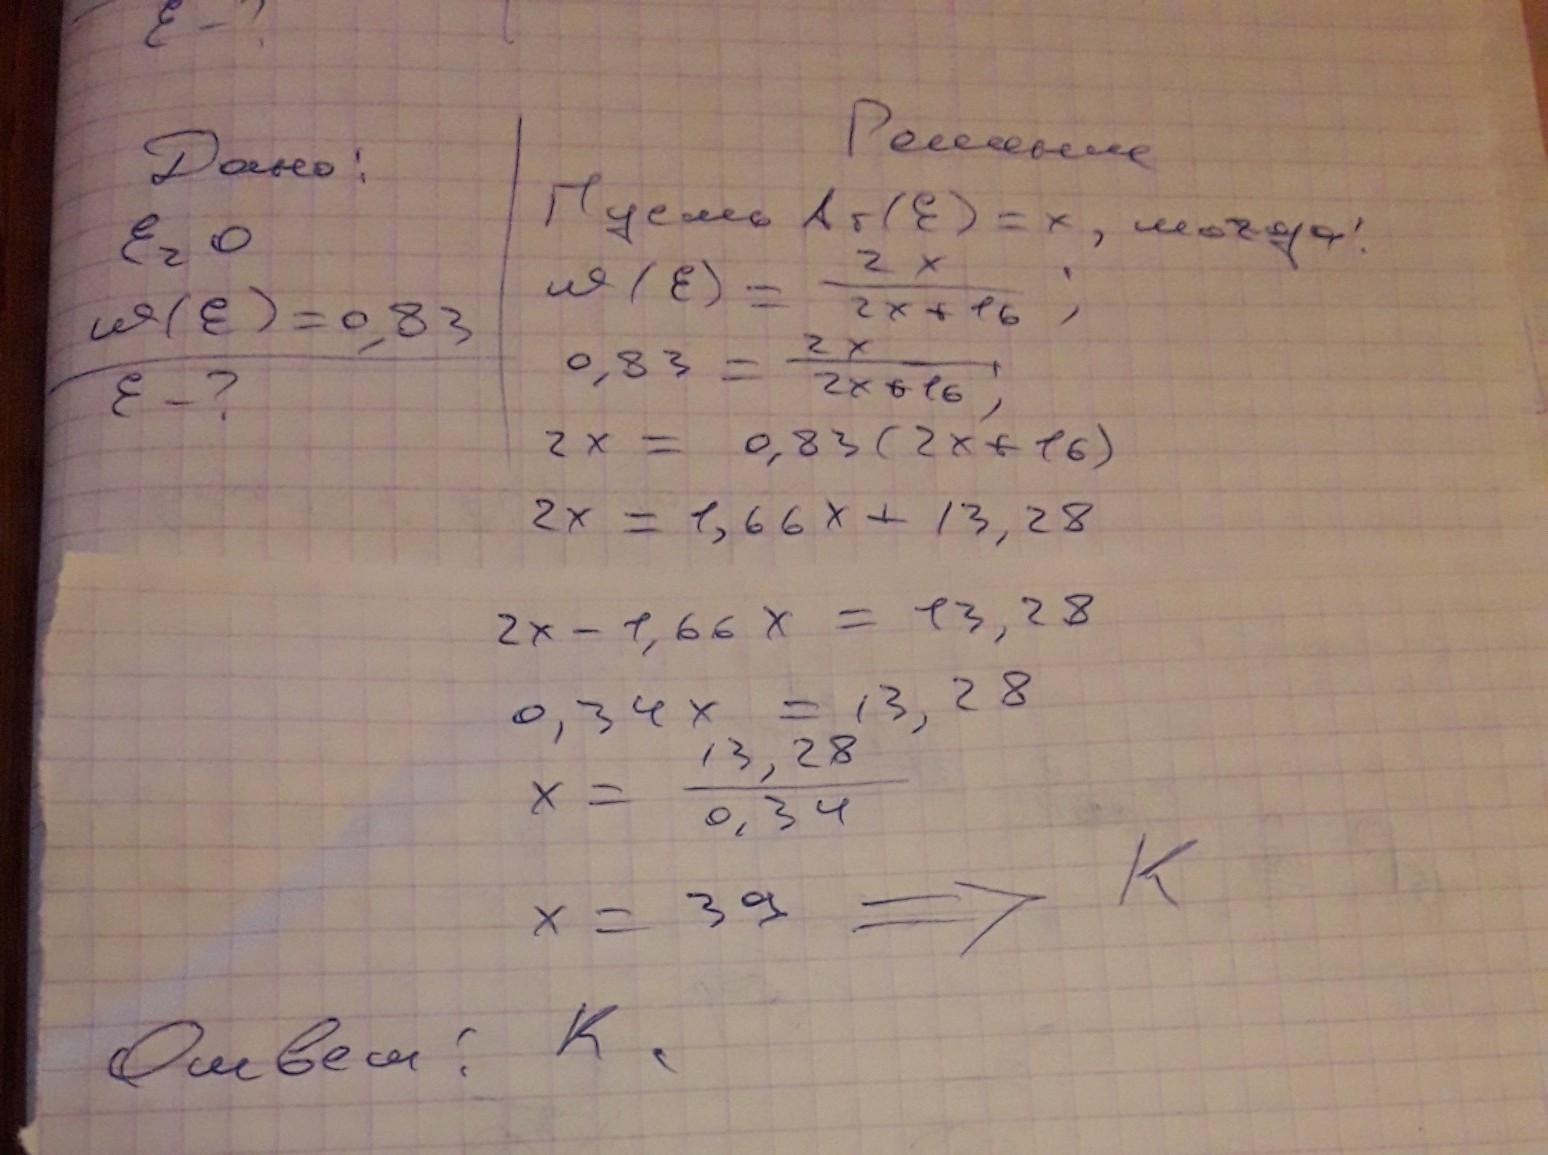 Е - ?
Дано:
Е₂О
ω(Е) = 0,83
Е - ?
Решение
Пусть Аr(Е) = x, тогда:
ω(Е) = 2x / (2x+16) ;
0,83 = 2x / (2x+16) ;
2x = 0,83(2x+16)
2x = 1,66x + 13,28
2x - 1,66x = 13,28
0,34x = 13,28
x = 13,28 / 0,34
x = 39 ⟹ K
Ответ: K.